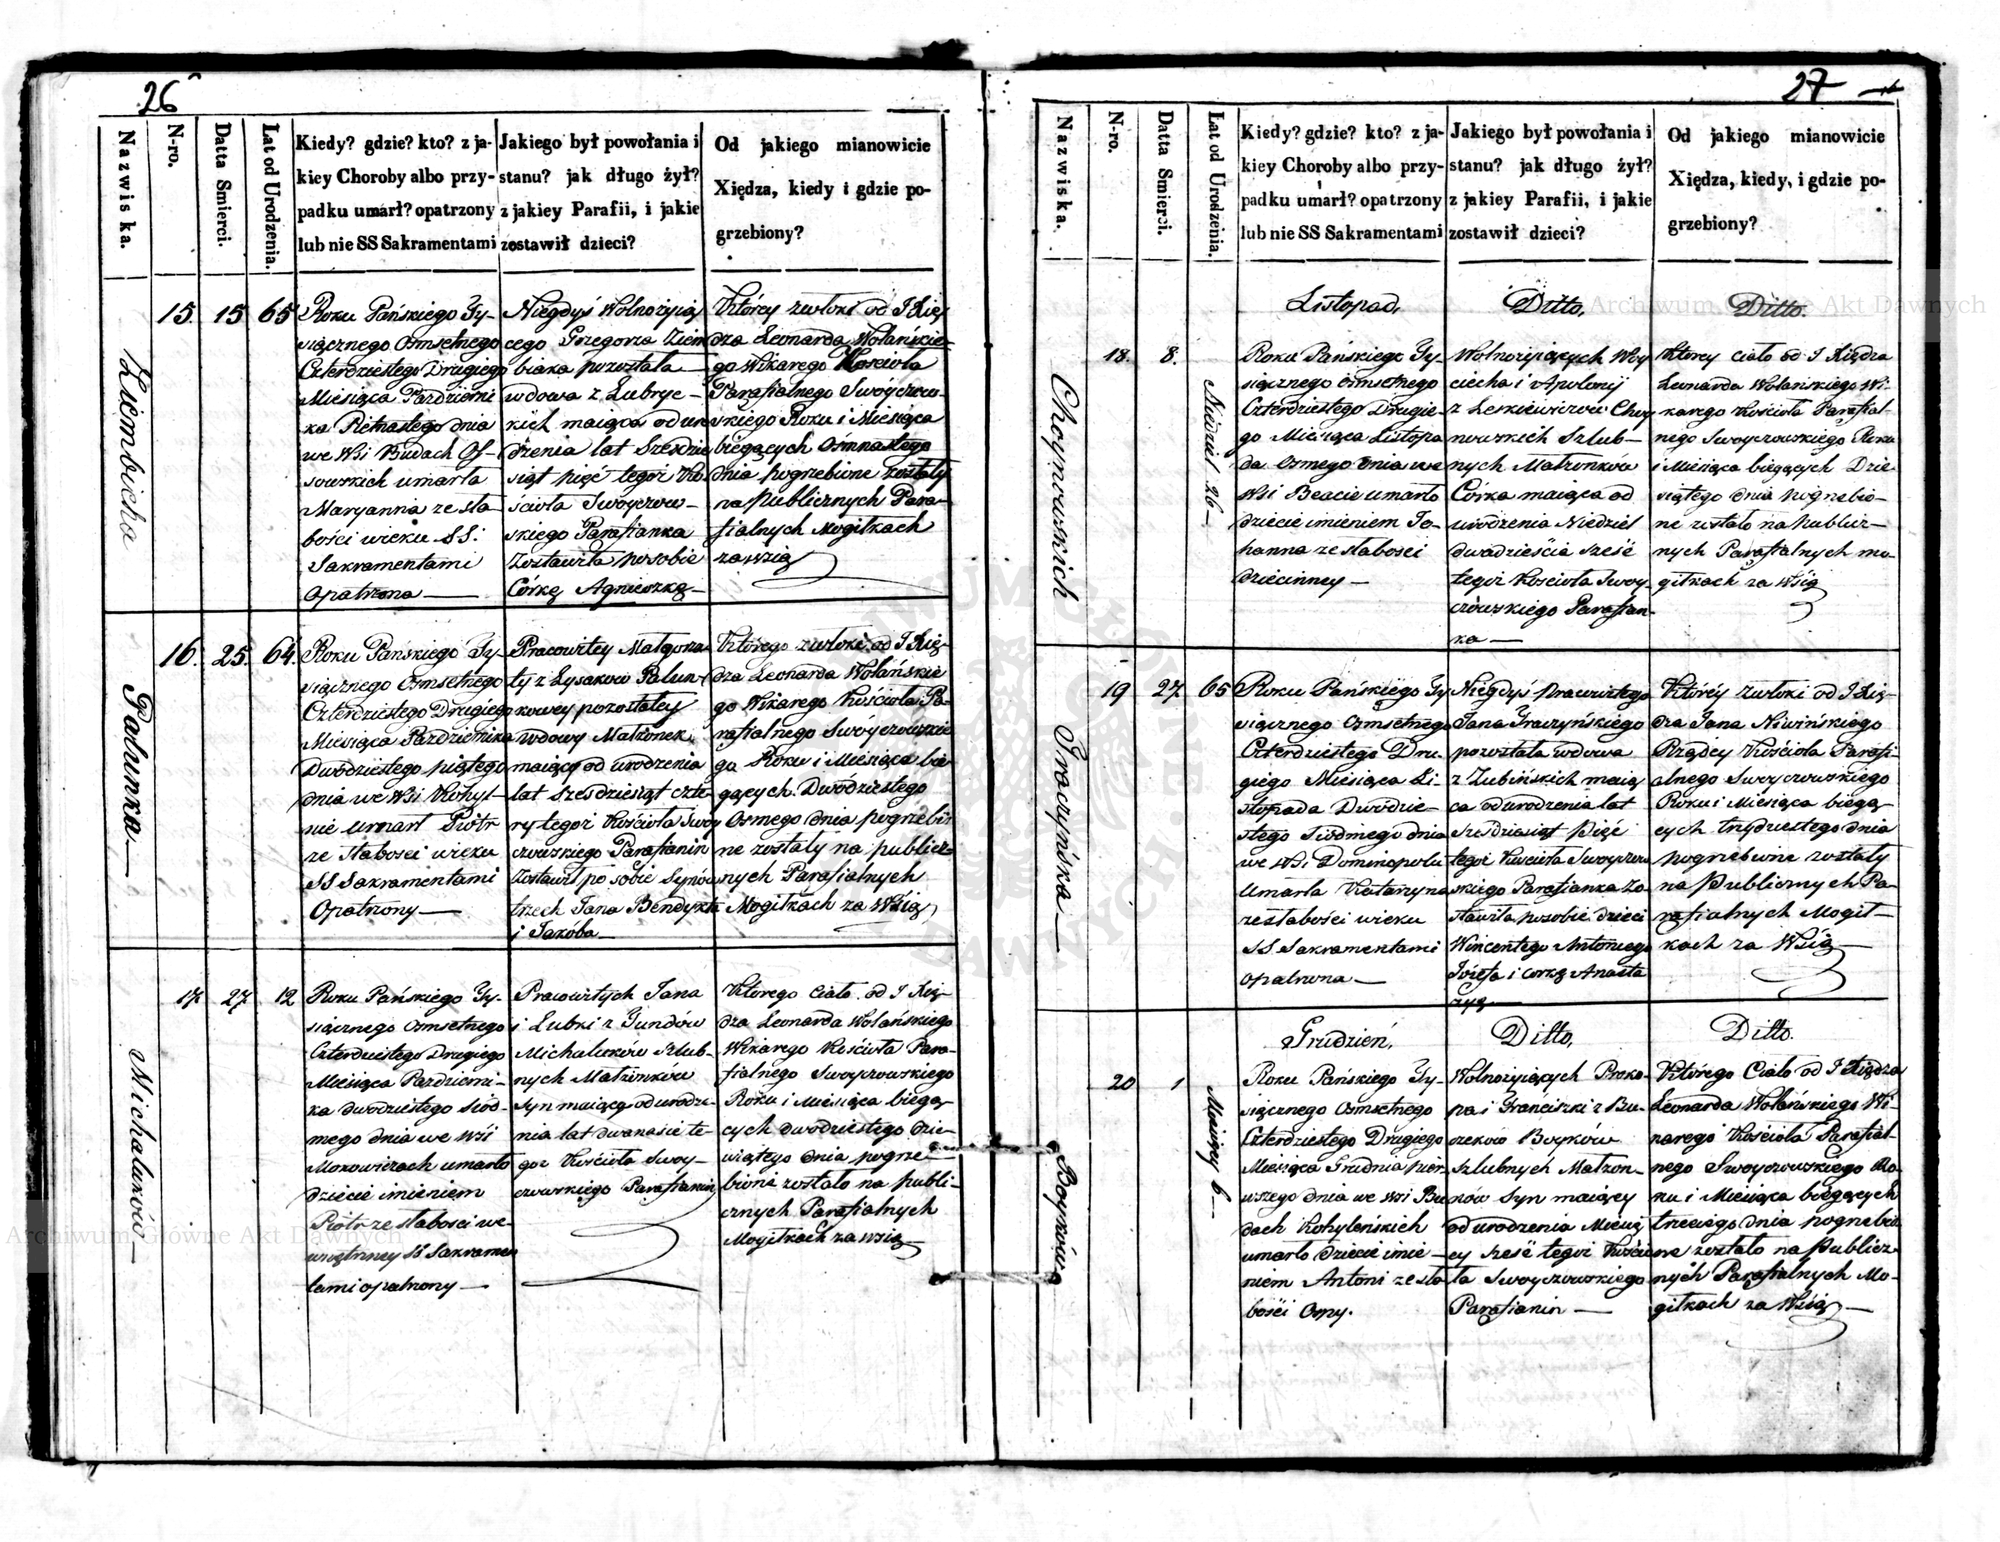 26
Nazwiska.
N-ro.
Datta Smierci.
Lat od Urodzenia.
Kiedy? gdzie? kto? z ja-
kiey Choroby albo przy-
padku umarł? opatrzony
lub nie SS Sakramentami
Jakiego był powołania i
stanu? jak długo żył?
z jakiey Parafii, i jakie
zostawił dzieci?
Od jakiego mianowicie
Xiędza, kiedy i gdzie po-
grzebiony?
Ziembicka
15. 15 65
Roku Pańskiego Ty-
siącznego Osmsetnego
Czterdziestego Drugiego
Miesiąca Pazdzierni
ka Pietnastego dnia
we Wsi Budach Os-
sowskich umarła
Maryanna ze sła
bości wieku SS:
Sakramentami
opatrzona —
Niegdyś Wolnożyią
cego Grzegorza Ziem
biaka pozostała
wdowa z Lubryc-
kich maiąca od uro
dzenia lat Szesdzie
siąt pięć tegoż Ko
ścioła Swoyczow-
skiego Parafianka
Zostawiła po sobie
Córkę Agnieszkę —
Którey zwłoki od J Xię
dza Leonarda Wolańskie-
go Wikarego Kościoła
Parafialnego Swoyczow-
skiego Roku i Miesiąca
biegących Osmnastego
dnia pogrzebione zostały
na publicznych Para-
fialnych Mogiłkach
za wsią
Palunka —
16. 25. 64.
Roku Pańskiego Ty-
siącznego Osmsetnego
Czterdziestego Drugiego
Miesiąca Pazdziernika
Dwódziestego piątego
dnia we Wsi Kohyl-
nie umarł Piotr
ze słabosci wieku
SS Sakramentami
Opatrzony —
Pracowitey Małgorza
ty z Łysaków Palun-
kowey pozostałey
Wdowy Małżonek
maiący od urodzenia
lat szesdziesiąt czte-
ry tegoż Kościoła Swoy
czowskiego Parafianin
Zostawił po sobie Synów
trzech Jana Benedykta
i Jakoba —
Którego zwłoki od J Xię-
dza Leonarda Wolańskie
go Wikarego Kościoła Pa-
rafialnego Swoyczowskie
go Roku i Miesiąca bie-
gących Dwódziestego
Osmego dnia pogrzebio
ne zostały na publicz-
nych Parafialnych
Mogiłkach za Wsią
Michaluków —
17 27 12
Roku Pańskiego Ty-
siącznego Osmsetnego
Czterdziestego Drugiego
Miesiąca Pazdzierni-
ka dwodziestego siód-
mego dnia we wsi
Mokowiczach umarło
dziecie imieniem
Piotr ze słabosci we-
wnętrzney SS Sakramen
tami opatrzony —
Pracowitych Jana
i Lubki z Jundów
Michaluków Szlub-
nych Małżonków
Syn maiący od urodze-
nia lat dwanaście te-
goż Kościoła Swoy-
czowskiego Parafianin
Którego ciało od J Xię-
dza Leonarda Wolańskiego
Wikarego Kościoła Para-
fialnego Swoyczowskiego
Roku i Miesiąca biegą-
cych dwódziestego dzie-
wiątego dnia pogrze-
bione zostało na publi-
cznych Parafialnych
Mogiłkach za wsią
27
Nazwiska.
N-ro.
Datta Smierci.
Lat od Urodzenia.
Kiedy? gdzie? kto? z ja-
kiey Choroby albo przy-
padku umarł? opatrzony
lub nie SS Sakramentami
Jakiego był powołania i
stanu? jak długo żył?
z jakiey Parafii, i jakie
zostawił dzieci?
Od jakiego mianowicie
Xiędza, kiedy, i gdzie po-
grzebiony?
Listopad, Ditto, Ditto.
Choynowskich
18. 8. Niedziel 26 —
Roku Pańskiego Ty-
siącznego Osmsetnego
Czterdziestego Drugie-
go Miesiąca Listopa
da Osmego dnia we
Wsi Beacie umarło
dziecie imieniem Jo-
hanna ze słabosci
dziecinney —
Wolnożyiących Woy
ciecha i Apolonij
z Leskiewiczów Choy
nowskich Szlub-
nych Małżonków
Córka maiąca od
urodzenia Niedziel
dwadzieścia sześć
tegoż Kościoła Swoy-
czowskiego Parafian-
ka —
Którey ciało od J Xiędza
Leonarda Wolańskiego Wi-
karego Kościoła Parafial-
nego Swoyczowskiego Roku
i Miesiąca biegących Dzie-
siątego dnia pogrzebio-
ne zostało na publicz-
nych Parafialnych mo-
giłkach za Wsią
Graczyńska —
19 27 65
Roku Pańskiego Ty
siącznego Osmsetnego
Czterdziestego Dru-
giego Miesiąca Li-
stopada Dwódzie-
stego Siódmego dnia
we wsi Dominopolu
Umarła Katarzyna
ze słabości wieku
SS Sakramentami
Opatrzona —
Niegdyś Pracowitego
Jana Graczyńskiego
pozostała wdowa
z Zubińskich maią
ca od urodzenia lat
sześdziesiąt Pięć
tegoż Kościoła Swoyczow
skiego Parafianka Zo-
stawiła po sobie dzieci
Wincentego Antoniego
Józefa i corkę Anasta
zyą
Którey zwłoki od J Xię-
dza Jana Niwińskiego
Rządcy Kościoła Parafi-
alnego Swoyczowskiego
Roku i Miesiąca biegą-
cych trzydziestego dnia
pogrzebione zostały
na Publicznych Pa-
rafialnych Mogił-
kach za Wsią —
Grudzień, Ditto, Ditto.
Boyków
20 1 Miesięcy 6 —
Roku Pańskiego Ty-
siącznego Osmsetnego
Czterdziestego Drugiego
Miesiąca Grudnia pier-
wszego dnia we Wsi Bu
dach Kohyleńskich
umarło dziecie imie-
niem Antoni ze sła
bości Ospy.
Wolnożyiących Proko-
pa i Franciszki z Bu-
czków Boyków
Szlubnych Małżon-
ków Syn maiący
od urodzenia Miesię
cy sześć tegoż Kościo
ła Swoyczowskiego
Parafianin —
Którego Ciało od J Xiędza
Leonarda Wolańskiego Wi-
karego Kościoła Parafial-
nego Swoyczowskiego Ro-
ku i Miesiąca biegących
trzeciego dnia pogrzebio
ne zostało na Publicz-
nych Parafialnych Mo-
giłkach za Wsią —
Archiwum Główne Akt Dawnych
Archiwum Główne Akt Dawnych
ARCHIWUM GŁÓWNE AKT DAWNYCH